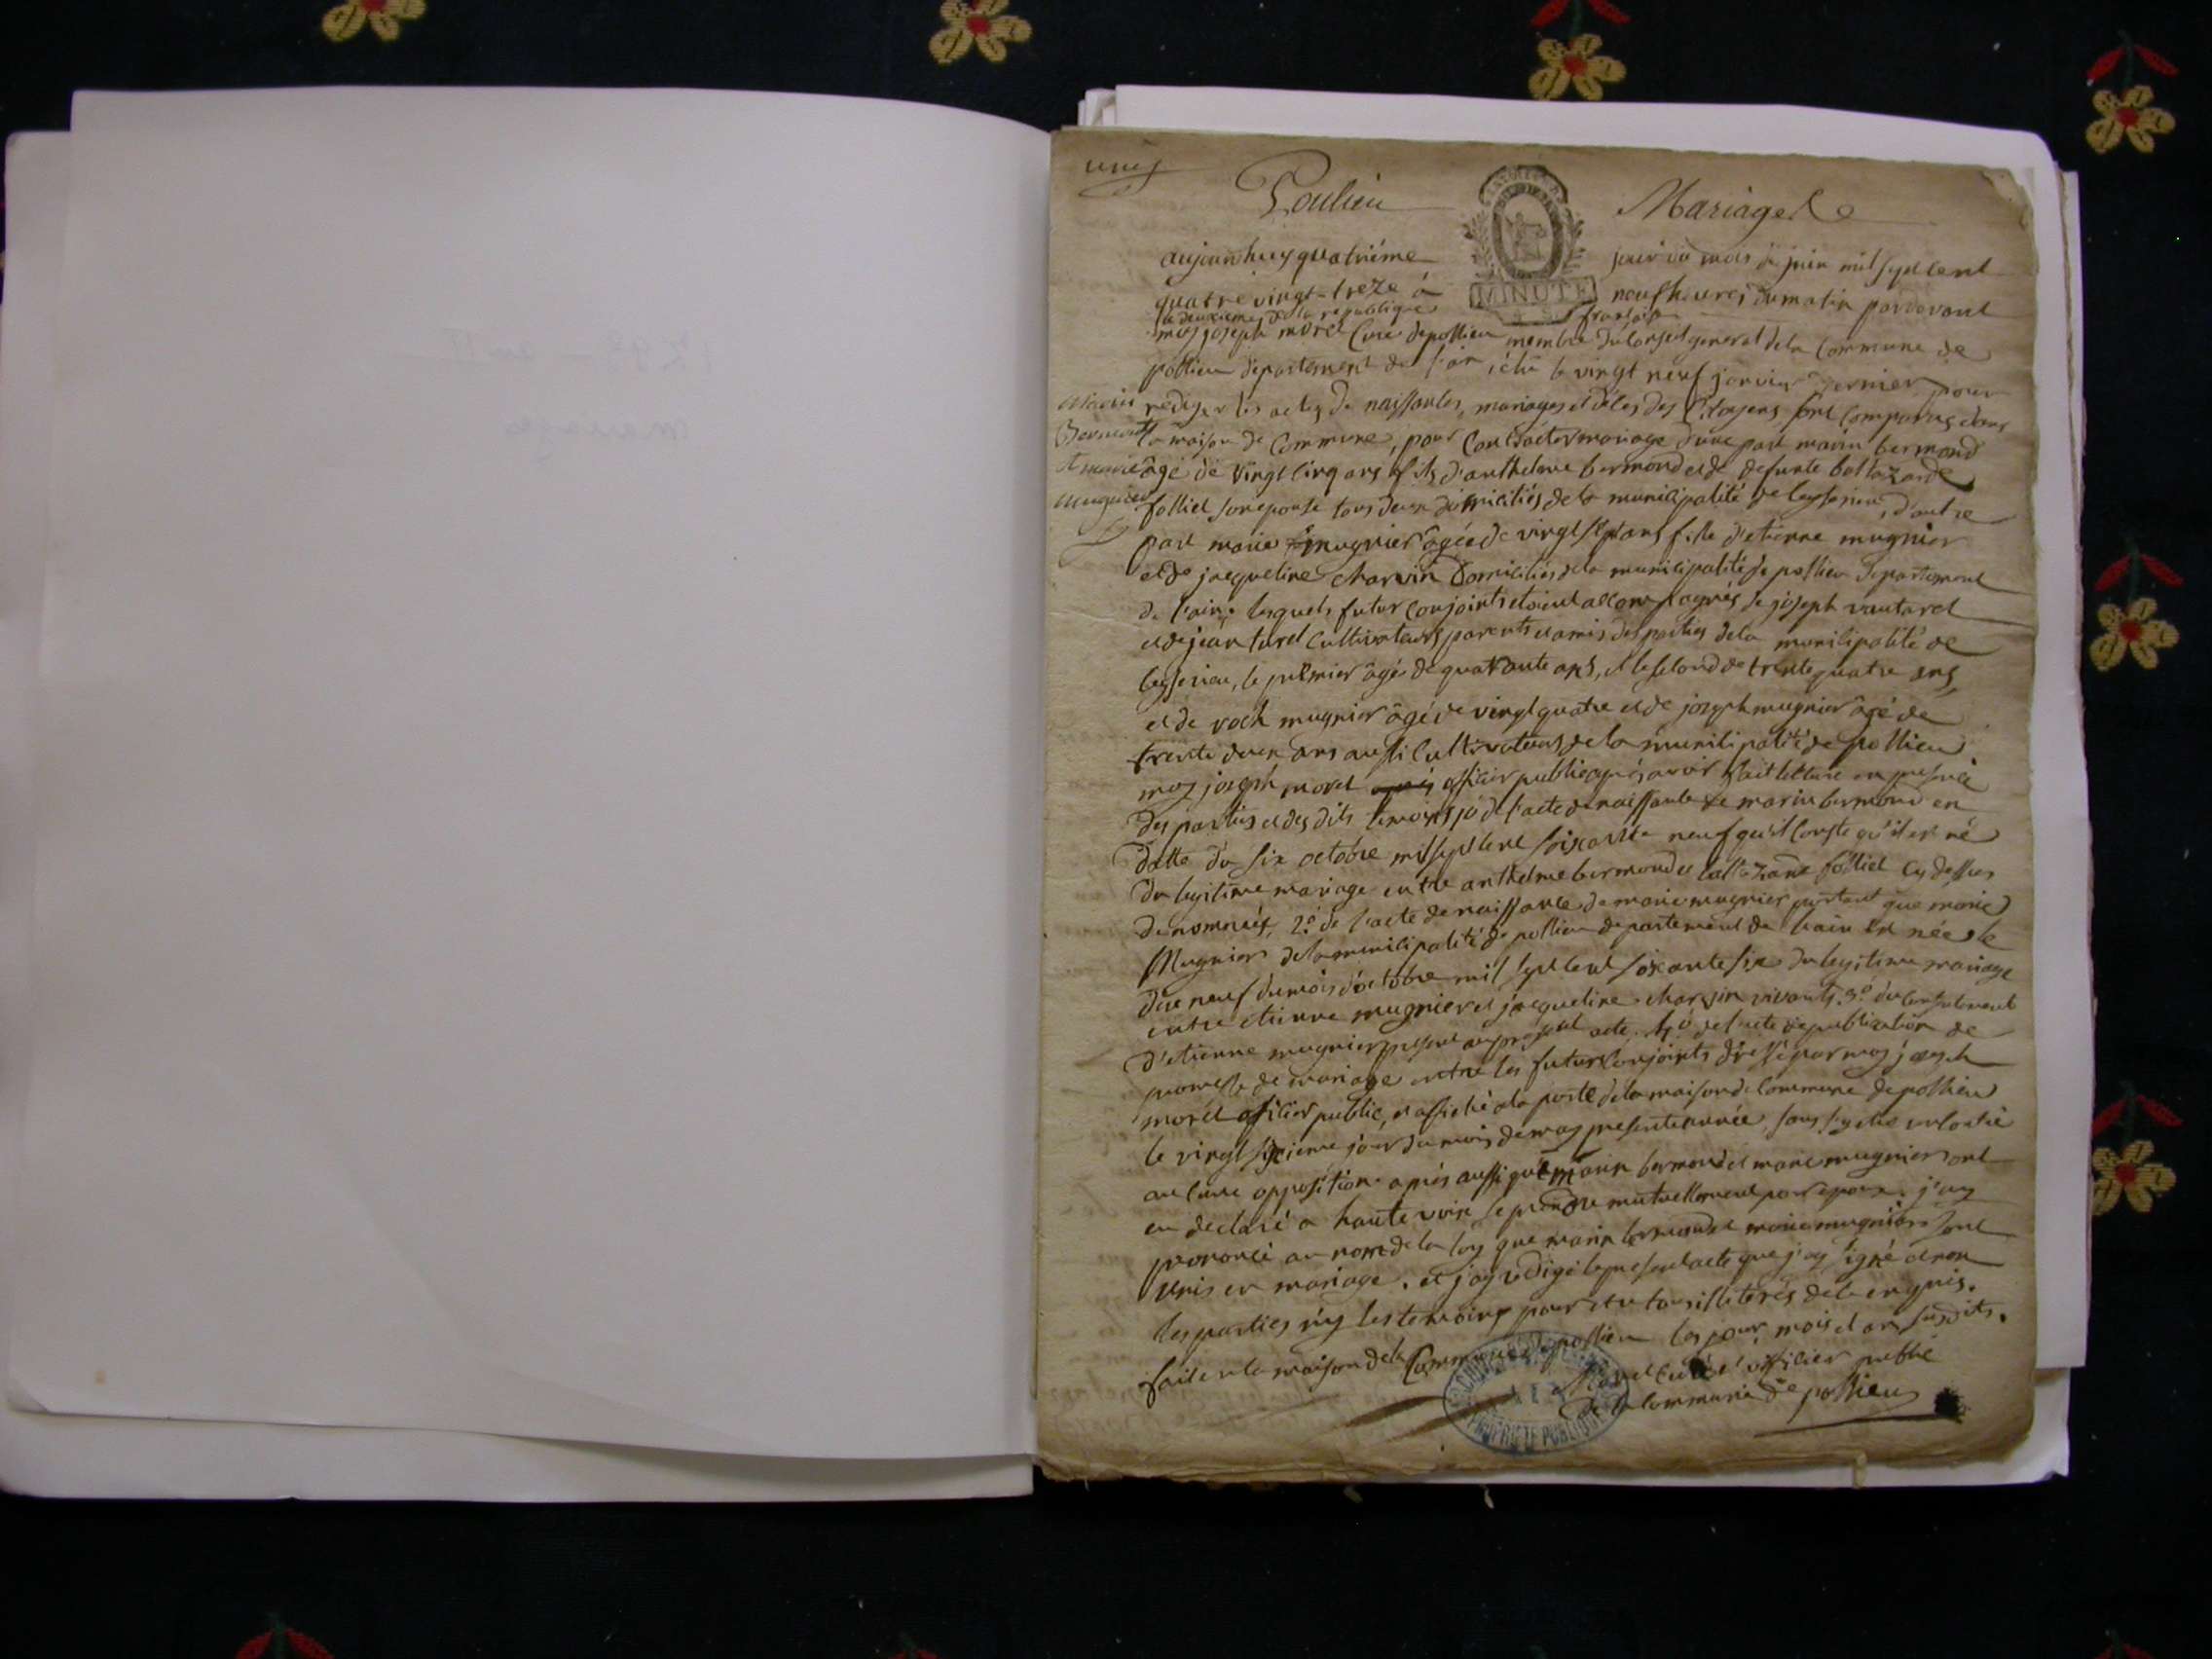 Poulieu
Mariage de
MINUTE
aujourdhuy quatriéme jour du mois de juin mil sept cent
quatre vingt-treze à neuf heures du matin pardevant
le deuxieme de la republique françoise
moy joseph morel Curé de pollieu membre du Conseil general de la Commune de
pollieu departement de l'ain, élu le vingt neuf janvier dernier pour
rediger les actes de naissances, mariages et décès des Citoyens sont Comparus dans
la maison de Commune, pour Contracter mariage d'une part marin bermond
âgé de vingt cinq ans fils d'anthelme bermond et de defunte baltazarde
folliet son epouse tous deux domiciliés de la municipalité de leyssieu, d'autre
part marie mugnier âgée de vingt sept ans fille d'etienne mugnier
et de jacqueline charvin domiciliés de la municipalité de pollieu departement
de l'ain: lesquels futur conjoints etoient accompagnés de joseph vautaret
et de jean turel Cultivateurs parents et amis des parties de la municipalité de
leyssieu, le premier âgé de quarante ans, et le second de trente quatre ans
et de roch mugnier âgé de vingt quatre et de joseph mugnier âgé de
trente deux ans aussi Cultivateurs de la municipalité de pollieu
moy joseph morel officier public après avoir fait lecture en presence
des parties et des dits temoins 1º de l'acte de naissance de marin bermond en
datte du six octobre mil sept cent soixante neuf qu'il Conste qu'il est né
du legitime mariage entre anthelme bermond et baltazarde folliet cy dessus
denommés, 2º. de l'acte de naissance de marie mugnier portant que marie
Mugnier de la municipalité de pollieu departement de l'ain est née le
dix neuf du mois d'octobre mil sept cent soixante six du legitime mariage
entre etienne mugnier et jacqueline charvin vivants. 3º. du consentement
d'etienne mugnier present au present acte. 4º de l'acte de publication de
promesse de mariage entre les futurs conjoints dressé par moy joseph
morel officier public, et affiché a la porte de la maison de Commune de pollieu
le vingt sixieme jour du mois de may presente année, sans
aucune opposition. après aussi que marin bermond et marie mugnier ont
eu declaré a haute voix se prendre mutuellement pour epoux. j'ay
prononcé au nom de la loy que marin bermond et marie mugnier sont
unis en mariage. et j'ay redigé le present acte que j'ay signé et non
les parties ny les temoins pour etre tous illiterés de ce enquis.
fait en la maison de la Commune de pollieu les jour, mois et an susdits.
Morel Curé et officier public
de la Commune de pollieu
marin
Bermond
et marie
mugnier
PROPRIÉTÉ PUBLIQUE